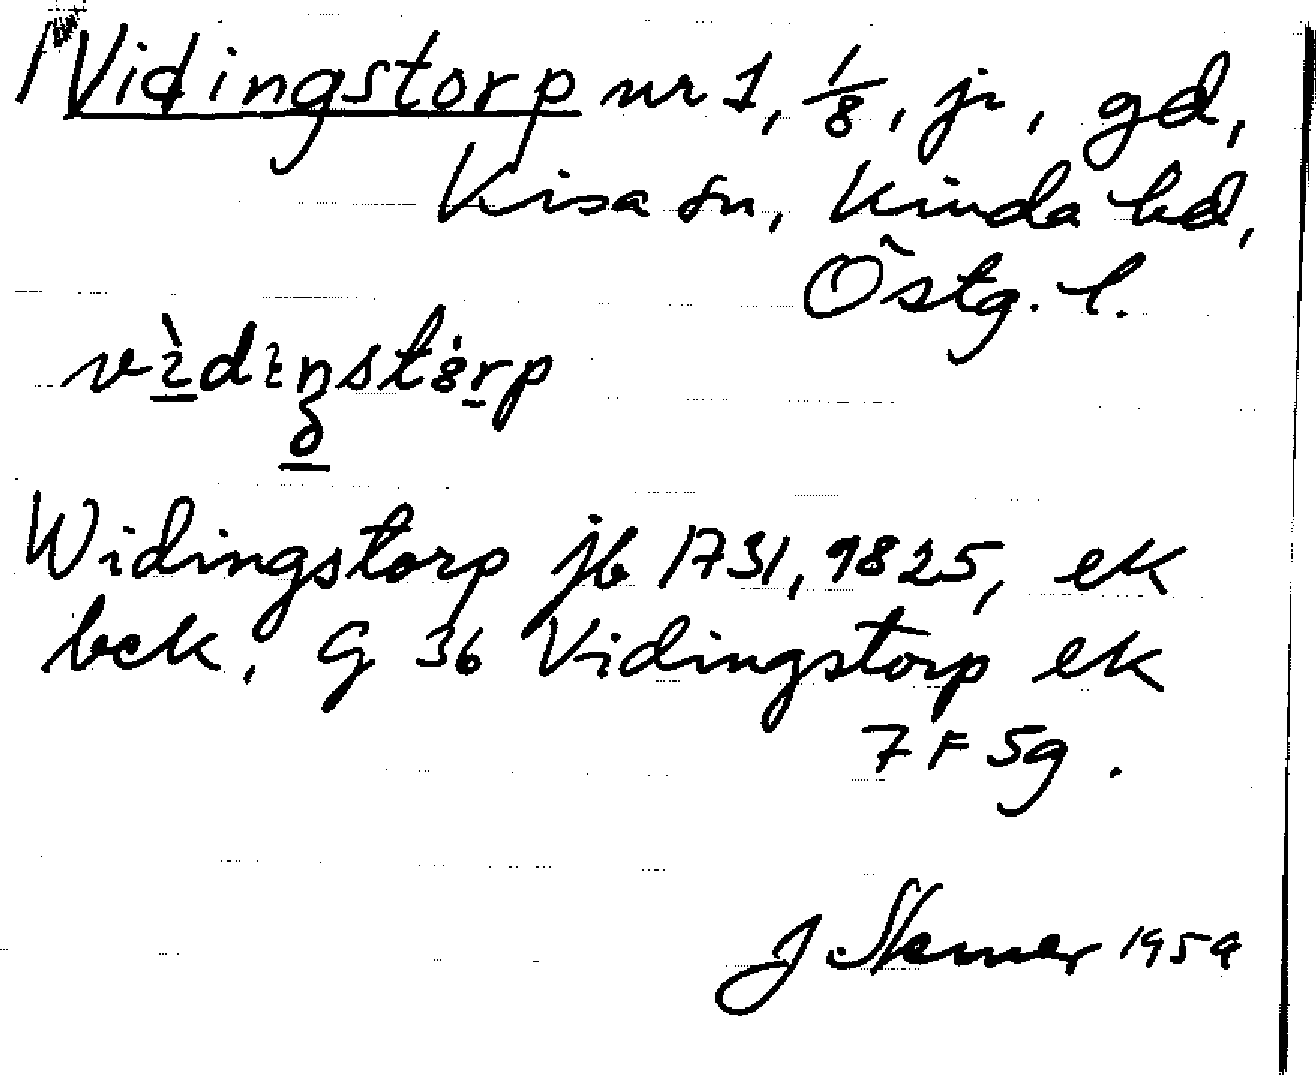 Vidingstorp nr 1, 1/8, jr, gd,
Kisa sn, Kinda hd,
Östg. l.
Widingstorp jb 1731, 1825, ek
bek. G 36 Vidingstorp ek
7 F 5g.
J 1959